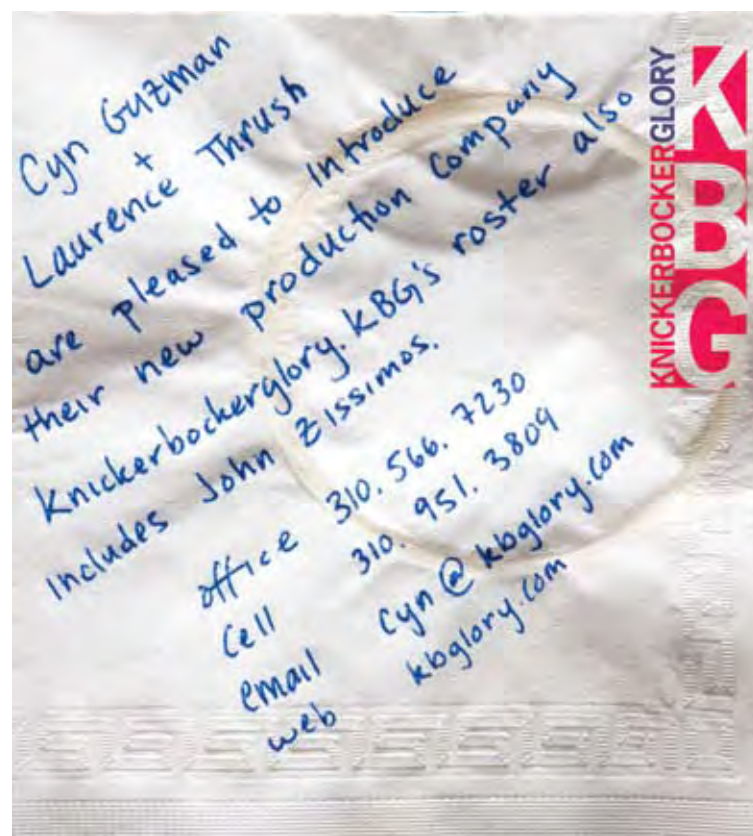 Cyn Guzman
+
Laurence Thrush
are pleased to introduce
their new production company
Knickerbockerglory. KBG's roster also
includes John Zissimos.
office 310. 566. 7230
cell 310. 951. 3809
email cyn@kbglory.com
web kbglory.com
KNICKERBOCKERGLORY
KBG